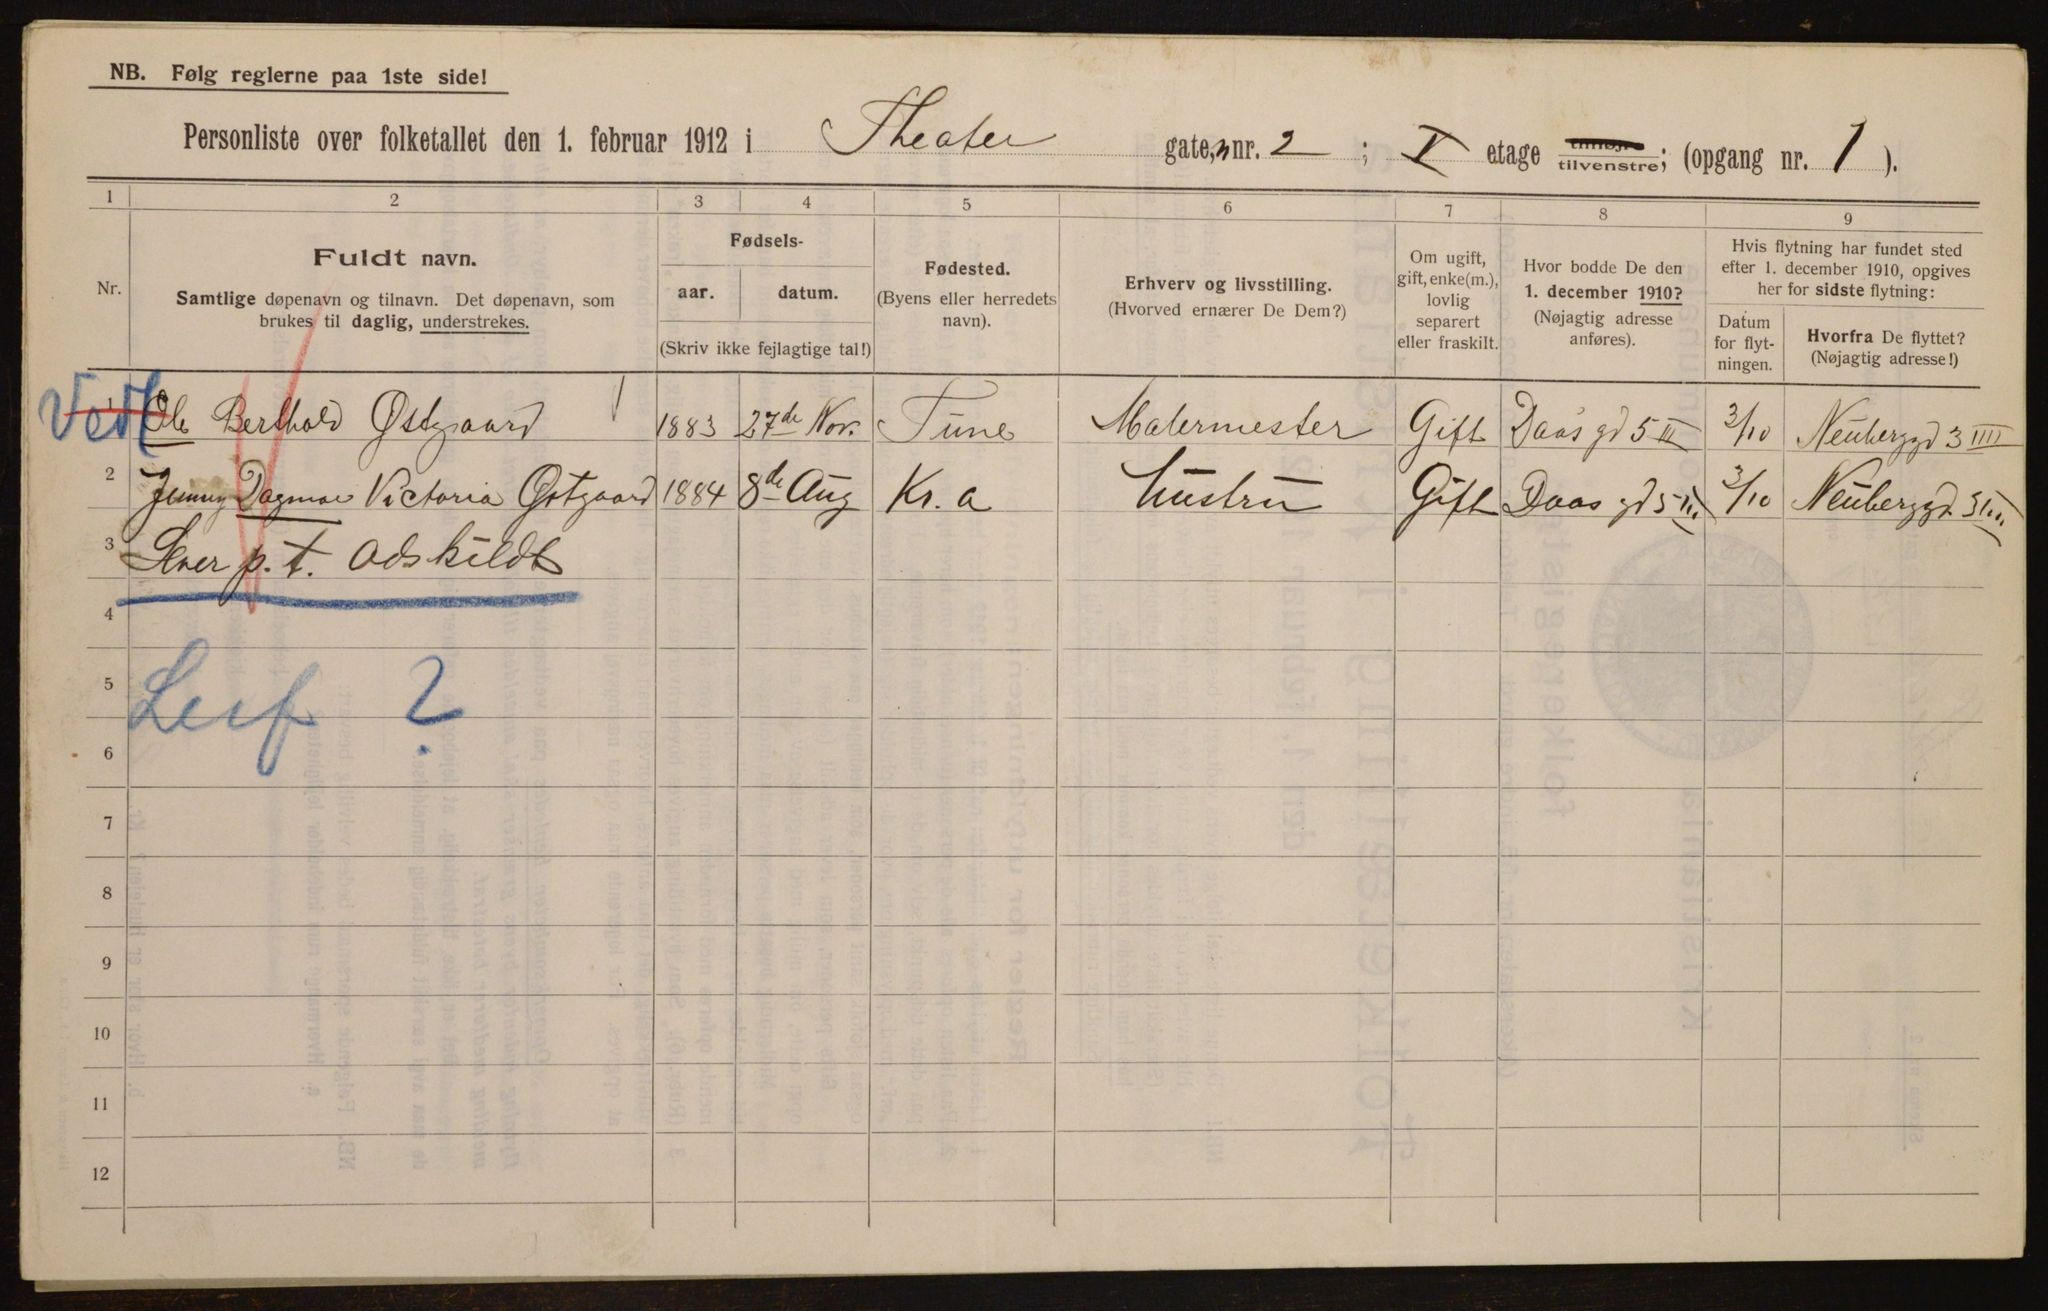 NB. Følg reglerne paa 1ste side!
Personliste over folketallet den 1. februar 1912 i Theater gate, nr. 2 ; V etage tilhøjre tilvenstre; (opgang nr. 1 ).
1 2 3 4 5 6 7 8 9
Nr.
Fuldt navn.
Samtlige døpenavn og tilnavn. Det døpenavn, som
brukes til daglig, understrekes.
Fødsels-
aar. datum.
(Skriv ikke fejlagtige tal!)
Fødested.
(Byens eller herredets
navn).
Erhverv og livsstilling.
(Hvorved ernærer De Dem?)
Om ugift,
gift, enke(m.),
lovlig
separert
eller fraskilt.
Hvor bodde De den
1. december 1910?
(Nøjagtig adresse
anføres).
Hvis flytning har fundet sted
efter 1. december 1910, opgives
her for sidste flytning:
Datum
for flyt-
ningen.
Hvorfra De flyttet?
(Nøjagtig adresse!)
1 Ole Berthold Østgaard 1883 27de Nov. Tune Malermester Gift Daas gd 5 III 3/10 Neuberggd 3 IIII
2 Jenny Dagmar Victoria Østgaard 1884 8de Aug Kr. a Hustru Gift Daas gd 5 III 3/10 Neuberggd. 3 IIII
3 Lever p. t. adskildt
4
5 Leif ?
6
7
8
9
10
11
12